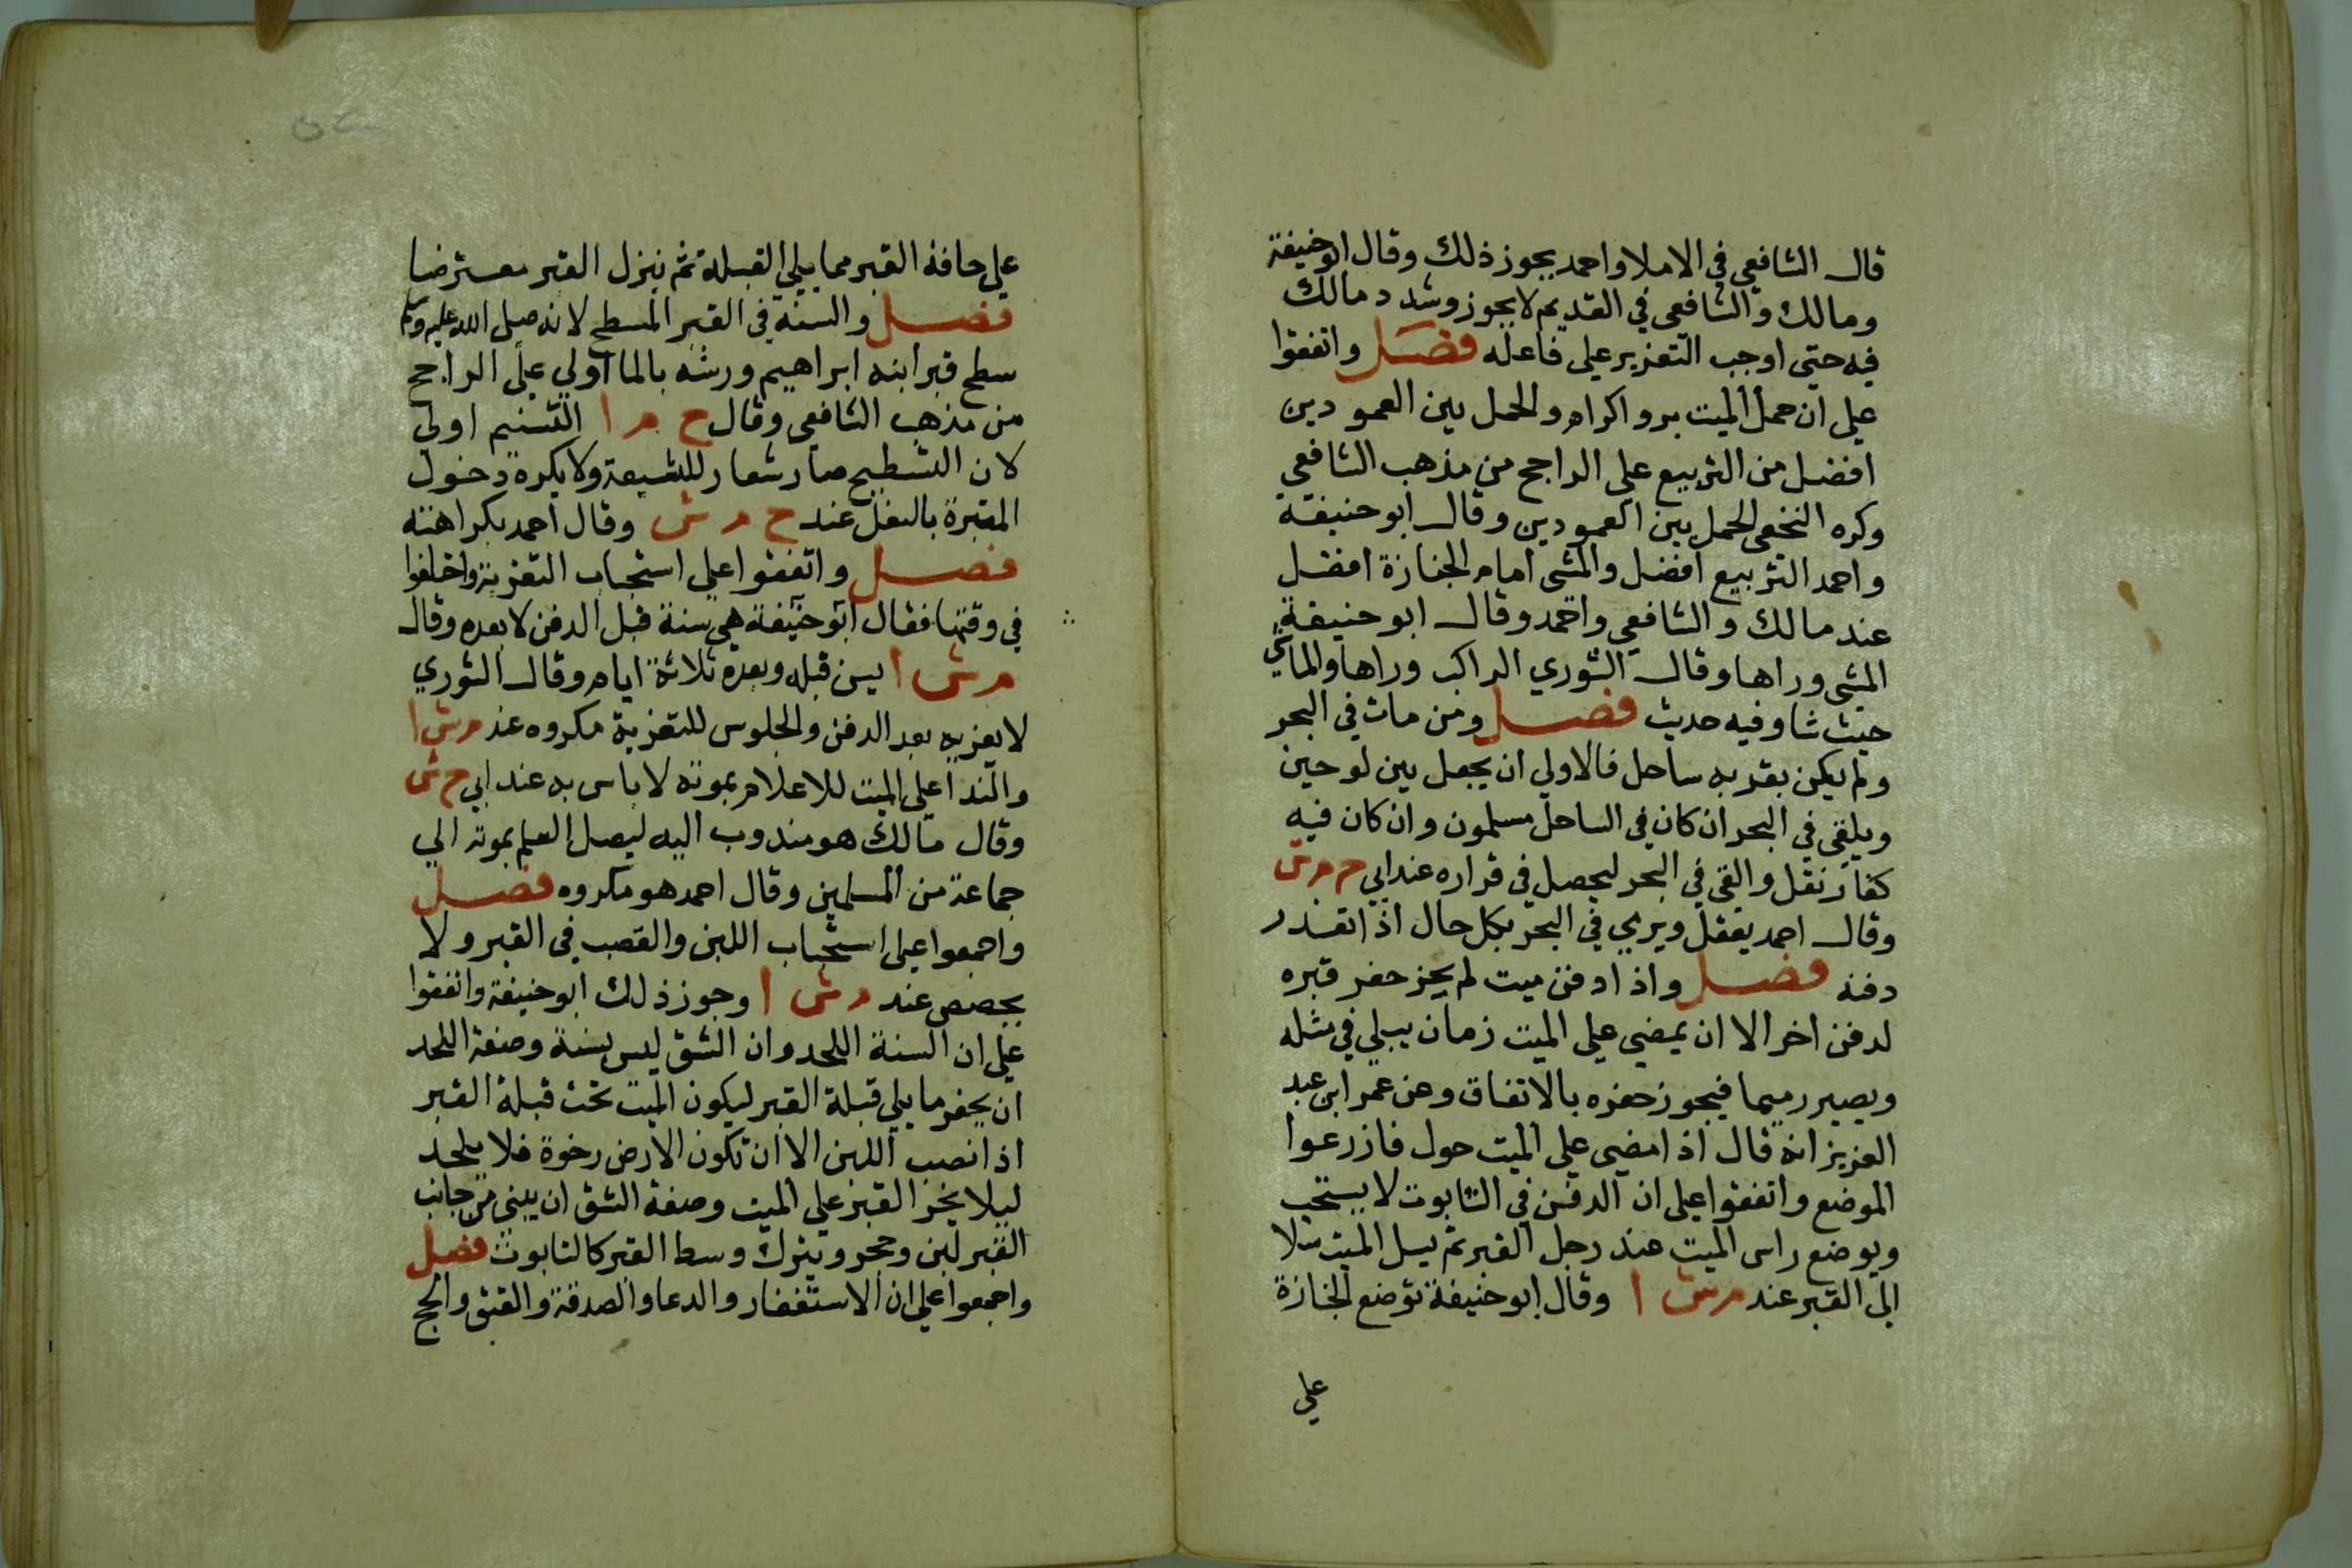 قال الشافعي في الاملا واحمد يجوز ذلك وقال ابو حنيفة
ومالك والشافعي في القديم لا يجوز وشدد مالك
فيه حتى اوجب التعزير على فاعله فصل واتفقوا
علي ان حمل الميت بر واكرام والحمل بين العمودين
افضل من التربيع علي الراجح من مذهب الشافعي
وكره النخعي الحمل بين العمودين وقال ابو حنيفة
واحمد التربيع افضل والمشي امام الجنازة افضل
عند مالك والشافعي واحمد وقال ابو حنيفة
المشي وراها وقال الثوري الراكب وراها والماشي
حيث شا وفيه حديث فصل ومن مات في البحر
ولم يكن بقربه ساحل فالاولي ان يجعل بين لوحين
ويلقي في البحر ان كان في الساحل مسلمون وان كان فيه
كفار نقل والقي في البحر ليحصل في قراره عند ابي ح م ش
وقال احمد يثقل ويرمي في البحر بكل حال اذا تعذر
دفنه فصل واذا دفن ميت لم يجز حفر قبره
لدفن اخر الا ان يمضي علي الميت زمان يبلي في مثله
ويصير رميما فيجوز حفره بالاتفاق وعن عمر ابن عبد
العزيز انه قال اذا مضي علي الميت حول فازرعوا
الموضع واتفقوا علي ان الدفن في التابوت لا يستحب
ويوضع راس الميت عند رجل القبر ثم يسل الميت سلا
الى القبر عند م ش ا وقال ابو حنيفة توضع الجنازة
علي
علي حافة القبر مما يلي القبلة ثم ينزل القبر معترضا
فصل والسنة في القبر المسطح لانه صلى الله عليه وسلم
سطح قبر ابنه ابراهيم ورشه بالما اولي علي الراجح
من مذهب الشافعي وقال ح م ا التسنيم اولي
لان التسطيح صار شعار للشيعة ولا يكره دخول
المقبرة بالنعل عند ح م ش وقال احمد بكراهته
فصل واتفقوا علي استحباب التعزية واختلفوا
في وقتها فقال ابو حنيفة هي سنة قبل الدفن لا بعده وقال
م ش ا يسن قبله وبعده ثلاثة ايام وقال الثوري
لا يعزيه بعد الدفن والجلوس للتعزية مكروه عند م ش ا
والندا علي الميت للاعلام بموته لا باس به عند ابي ح ش
وقال مالك هو مندوب اليه ليصل العلم بموته الي
جماعة من المسلمين وقال احمد هو مكروه فصل
واجمعوا علي استحباب اللبن والقصب في القبر ولا
يجصص عند م ش ا وجوز ذلك ابو حنيفة واتفقوا
علي ان السنة اللحد وان الشق ليس بسنة وصفة اللحد
ان يحفر ما يلي قبلة القبر ليكون الميت تحت قبلة القبر
اذا نصب اللبن الا ان تكون الارض رخوة فلا يلحد
ليلا يخر القبر علي الميت وصفة الشق ان يبني من جانب
القبر لبن وحجر ويترك وسط القبر كالتابوت فصل
واجمعوا علي ان الاستغفار والدعا والصدقة والعتق والحج